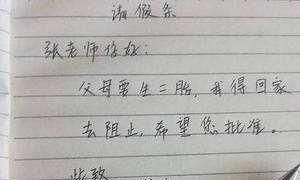 请假条
张老师您好：
父母要生二胎，我得回家
去阻止，希望您批准。
此致